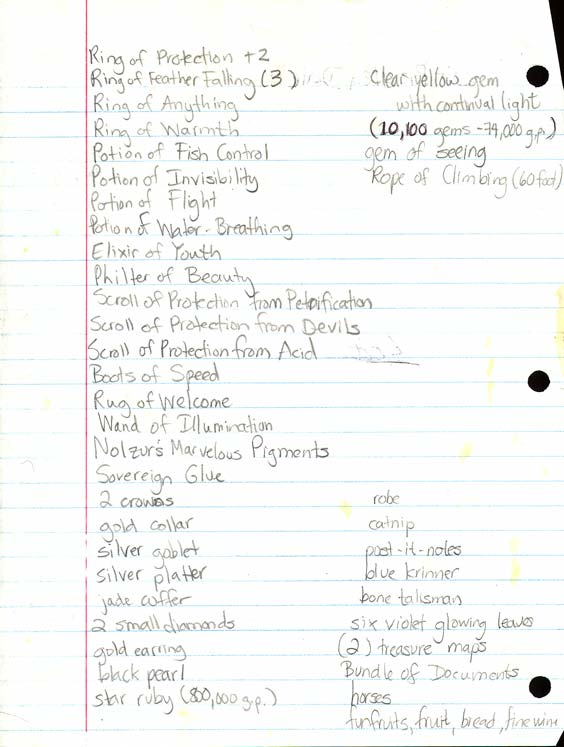 Ring of Protection +2
Ring of Feather Falling (3)
Ring of Anything
Ring of Warmth
Potion of Fish Control
Potion of Invisibility
Potion of Flight
Potion of Water-Breathing
Elixir of Youth
Philter of Beauty
Scroll of Protection from Petrification
Scroll of Protection from Devils
Scroll of Protection from Acid
Boots of Speed
Rug of Welcome
Wand of Illumination
Nolzur's Marvelous Pigments
Sovereign Glue
2 crowns
gold collar
silver goblet
silver platter
jade coffer
2 small diamonds
gold earring
black pearl
star ruby (800,000 g.p.)
Clear yellow gem
with continual light
(10,100 gems - 74,000 g.p.)
gem of seeing
Rope of Climbing (60 foot)
robe
catnip
post-it-notes
blue krinner
bone talisman
six violet glowing leaves
(2) treasure maps
Bundle of Documents
horses
fruit, bread, fine wine